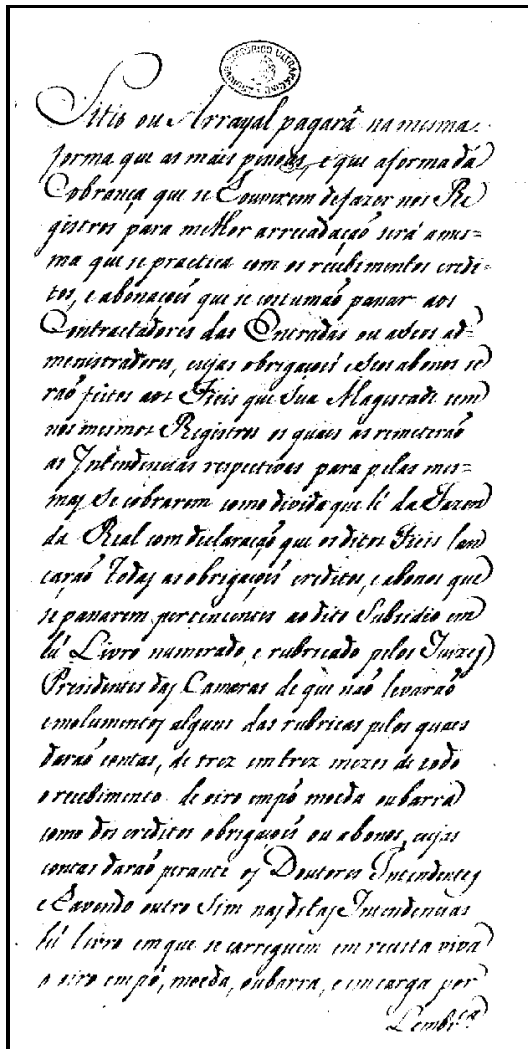 ARCHIVO HISTÓRICO ULTRAMARINO
Sitio ou Arrayal pagarâ na mesma
forma que as mais penoas, e que aforma dâ
Cobrança que se Houverem de fazer nos Re
gistros para melhor arrecadaçaõ será ames=
ma que se practica com os recebimentos credi=
tos, e abonaçoẽs que se costumaõ panar aos
Contractadores das Entradas ou aseos ad=
menistradores, cujas obrigaçoẽs eseos abonos se
raõ feitos aos Fieis que Sua Magestade tem
nos mesmos Registros os quais as remeteraõ
as Intendencias respectivas para pelas mes=
mas se cobrarem como divida que hé da Fazen
da Real com declaraçaõ que os ditos Fieis lan
çaraõ todas as obrigaçoẽs creditos, e abonos que
se panarem pertencentes ao dito Subsidio em
hũ Livro numerado, e rubricado pelos Juizes
Presidentes das Camaras de que naõ levaraõ
emolumentos alguns das rubricas pelos quaes
daraõ contas, de trez em trez mezes de todo
o recebimento de oiro empó moeda oubarra
como dos creditos obrigaçoẽs ou abonos, cujas
contas daraõ perante os Doutores Intendentes
e Havendo outro Sim nas ditas Intendencias
hũ livro em que se carreguem em receita viva
o oiro empó, moeda, oubarra, e em carga por
Lembrça